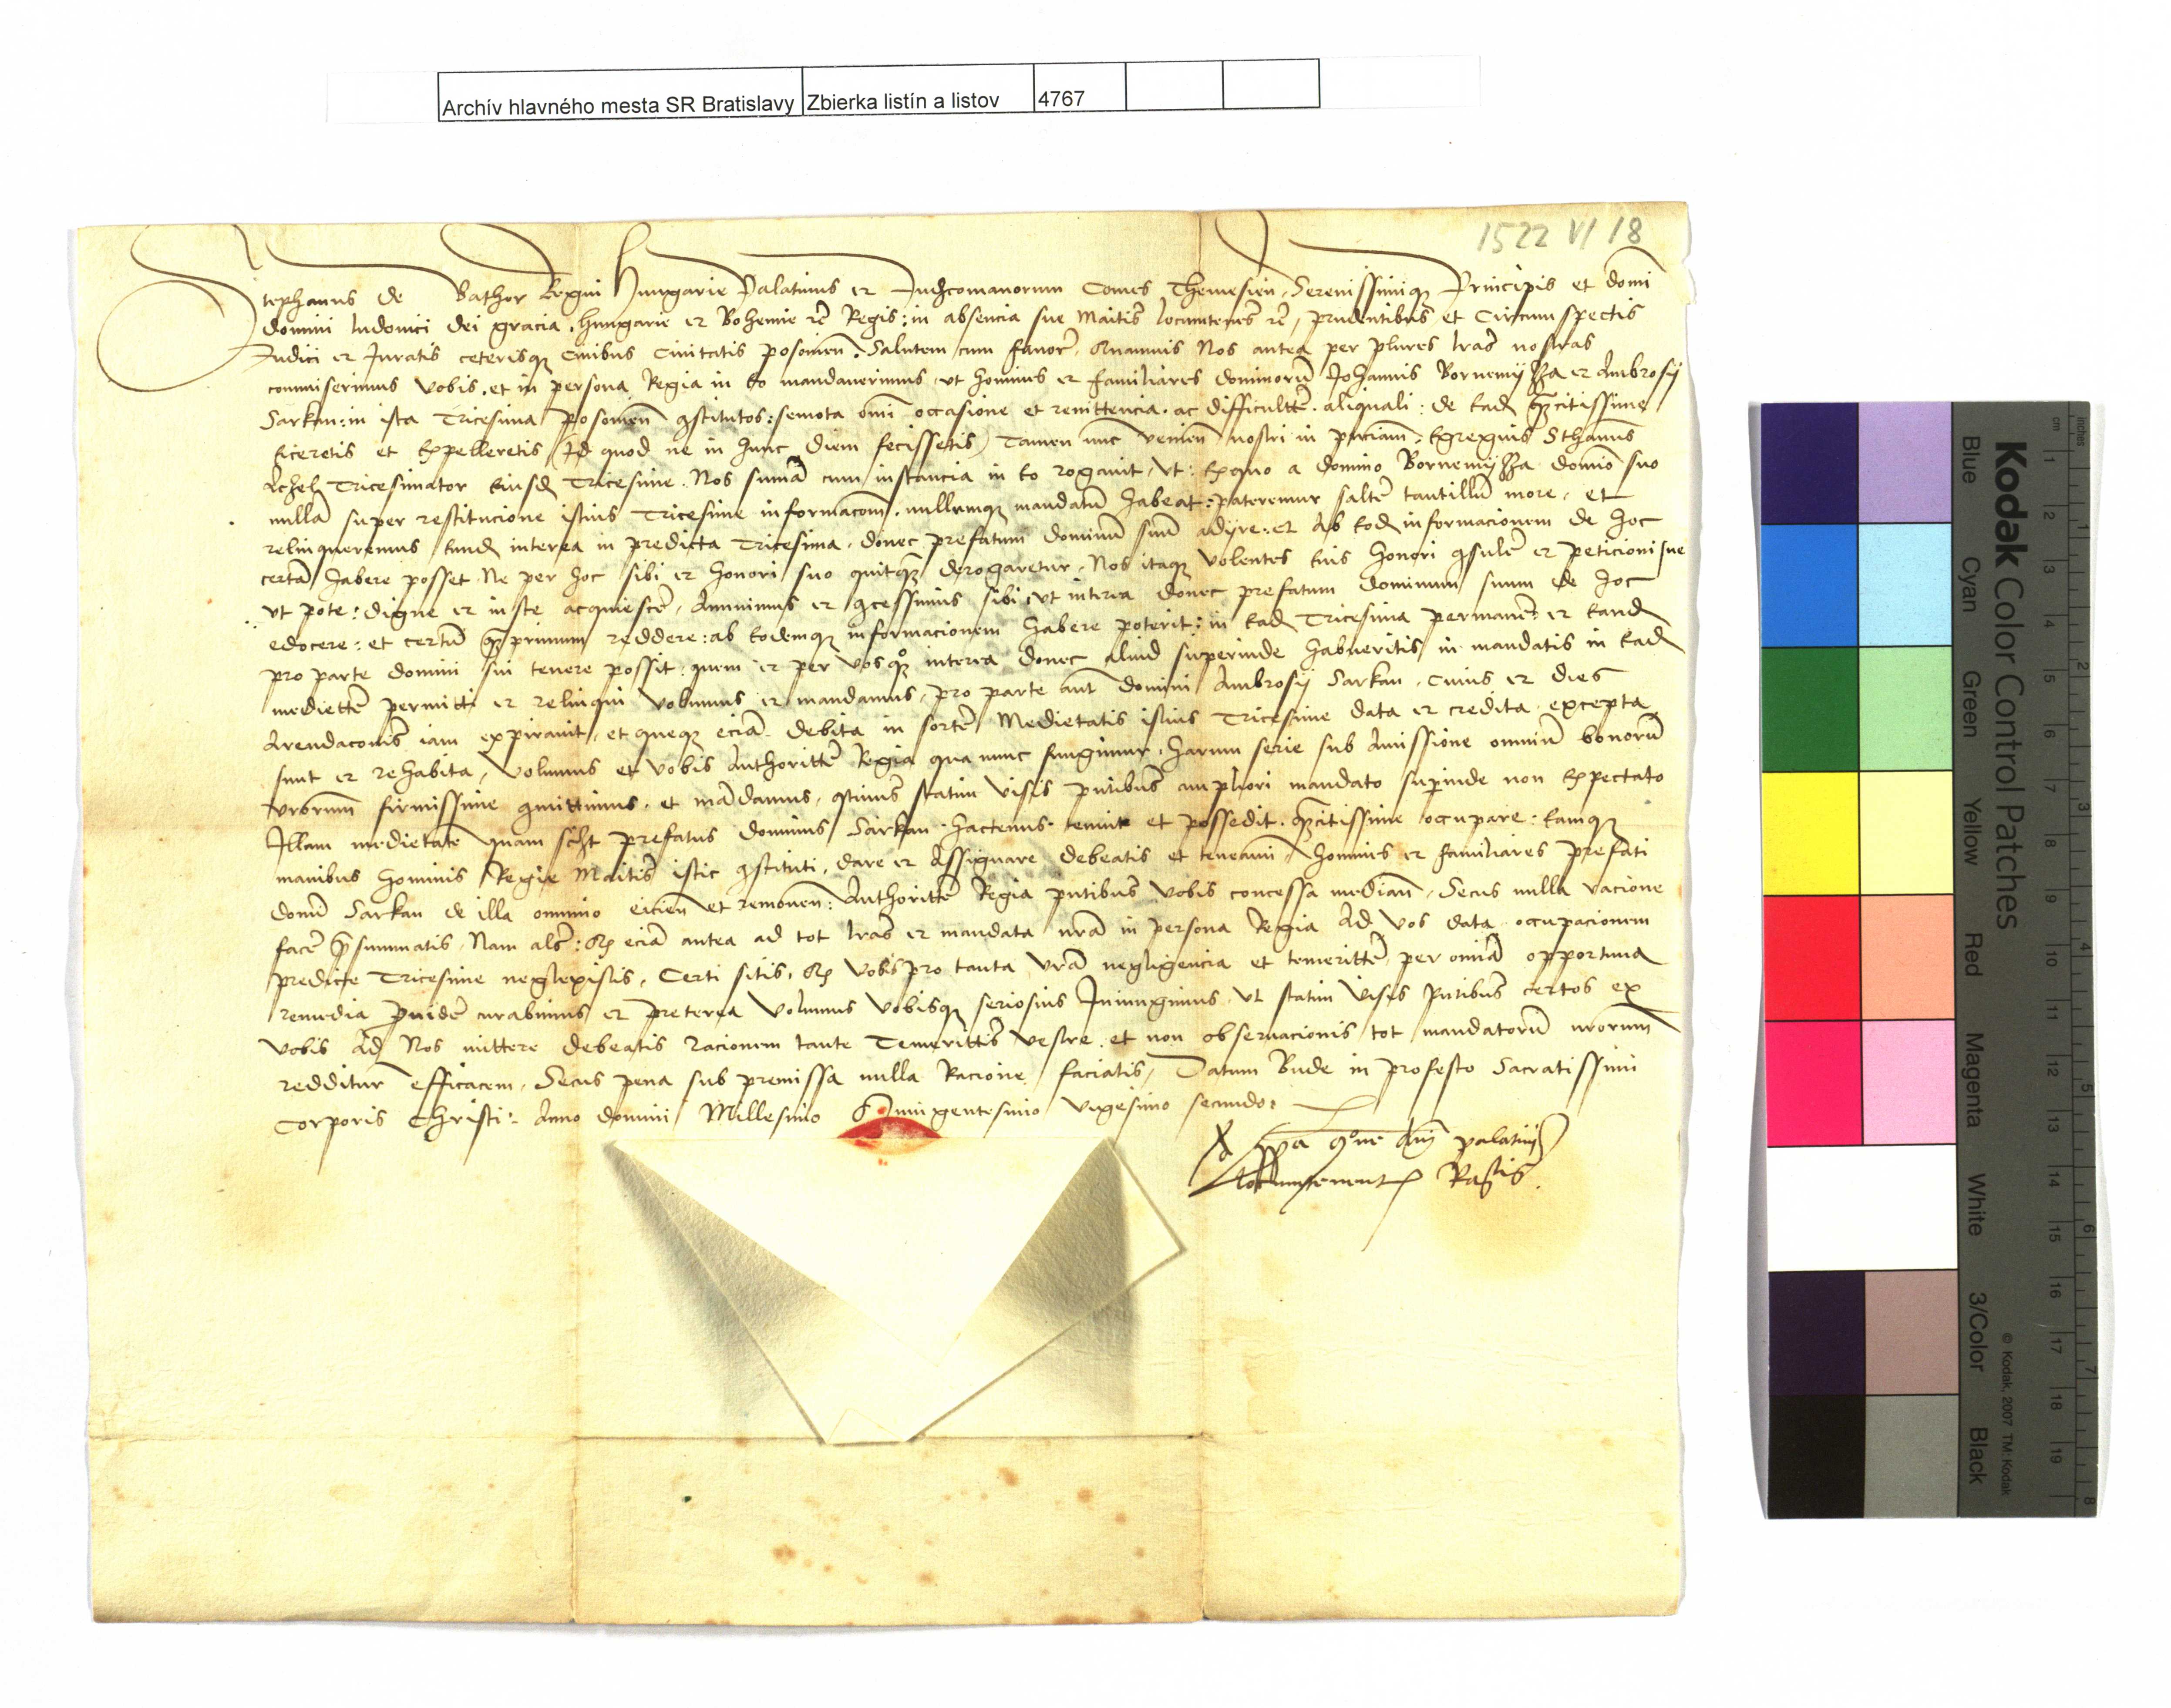 Archív hlavného mesta SR Bratislavy Zbierka listín a listov 4767
1522 VI 18
Stephanus de Bathor Regni Hungarie Palatinus et Judex comanorum Comes Themesien̄ Serenissimiq꜒ Principis et domī
domini ludouici dei gracia Hungarie et Bohemie rc̄ Regis: in absencia sue Maītis locumteneñs rc̄, prudentibus et Circumspectis
Judici et Juratis ceterisq꜒ ciuibus Ciuitatis posonieñ. Salutem cum fauorē. Quamuis Nos antea per plures l̄ras nostras
commiserimus vobis, et in persona Regia in eo mandauerimus, vt homines et familiares dominorū Johannis Bornemyssza et Ambrosij
Sarkan: in ista Tricesima Posonieñ ꝯstitutos: semota om̄i occasione et renittencia, ac difficulttē aliquali: de ead̄ q̄citissime
eiceretis et expelleretis (Id quod ne in hunc diem fecissetis) Tamen nūc venieñ nostri in pn̄ciam Egregius Sthanūs
tricesimator eiusd̄ Tricesime. Nos sumā cum instancia in eo rogauit, vt: exquo a domino Bornemyssza domīo suo
nullā super restitucione istius Tricesime informacōem, nullumq꜒ mandatū habeat: pateremur saltē tantillū more, et
relinqueremus eund̄ interea in predicta Tricesima, donec prefatum dominū suū adyre: et ab eod̄ informacionem de hoc
certā habere posset. Ne per hoc sibi et honori suo quitq̄ derogaretur. Nos itaq꜒ volentes eius honori ꝯsulē et peticioni sue
vt pote: digne et iuste acquiescē, Annuimus et ꝯcessimus sibi: vt interea donec prefatum dominum suum de hoc
edocere: et certū q̄primum reddere: ab eodemq꜒ informacionem habere poterit: in ead̄ Tricesima permanē: et eand̄
pro parte domini sui tenere possit: quem et per vos q꜒ interea donec aliud superinde habueritis in mandatis in ead̄
mediettē permitti et relinqui volumus et mandamus, pro parte aūt domini Ambrosij Sarkan, cuius et dies
Arendacōnis iam expirauit, et queq꜒ eciā debita in sortē Medietatis istius Tricesime data et credita excepta
sunt et rehabita, volumus et vobis Authorittē Regia qua nunc fungimur, harum serie sub Amissione omniū bonorū
vr̄orum firmissime ꝯmittimus, et mādamus, statim visis pn̄tibus ampliori mandato suꝑinde non expectato
Illam medietatē quam prefatus dominus Sarkan hactenus tenuit et possedit, q̄citissime occupare: eamq꜒
manibus hominis Regie Maītis istic ꝯstituti, dare et Assignare debeatis et teneamini, homines et familiares prefati
domī Sarkan de illa omnino eicieñ et remoueñ: Authorittē Regia pn̄tibus vobis concessa mediañ. Secus nulla racione
facē p̄summatis. Nam als̄: q꜒ eciā antea ad tot l̄ras et mandata nr̄a in persona Regia Ad vos data occupacionem
predicte Tricesime neglexistis, Certi sitis, q꜒ vobis pro tanta vr̄a negligencia et temerittē per om̄ia opportuna
remedia ꝓuidē curabimus et preterea volumus vobisq꜒ seriosius Iniungimus vt statim visis pn̄tibus certos ex
vobis Ad Nos mittere debeatis racionem tante Temerittis vestre, et non obseruacionis tot mandatorū nr̄orum
redditur̄ efficacem. Secus pena sub premissa nulla Racione faciatis, Datum Bude in profesto Sacratissimi
Corporis Christi: Anno domini Millesimo Quingentesimo vigesimo secundo.
ꝓpa dn̄i palatini
locumtenent̄ Ra͞tis.
Kodak Color Control Patches
Blue Cyan Green Yellow Red Magenta White 3/Color Black
© Kodak, 2007 TM: Kodak
inches 1 2 3 4 5 6 7 8
cm 1 2 3 4 5 6 7 8 9 10 11 12 13 14 15 16 17 18 19